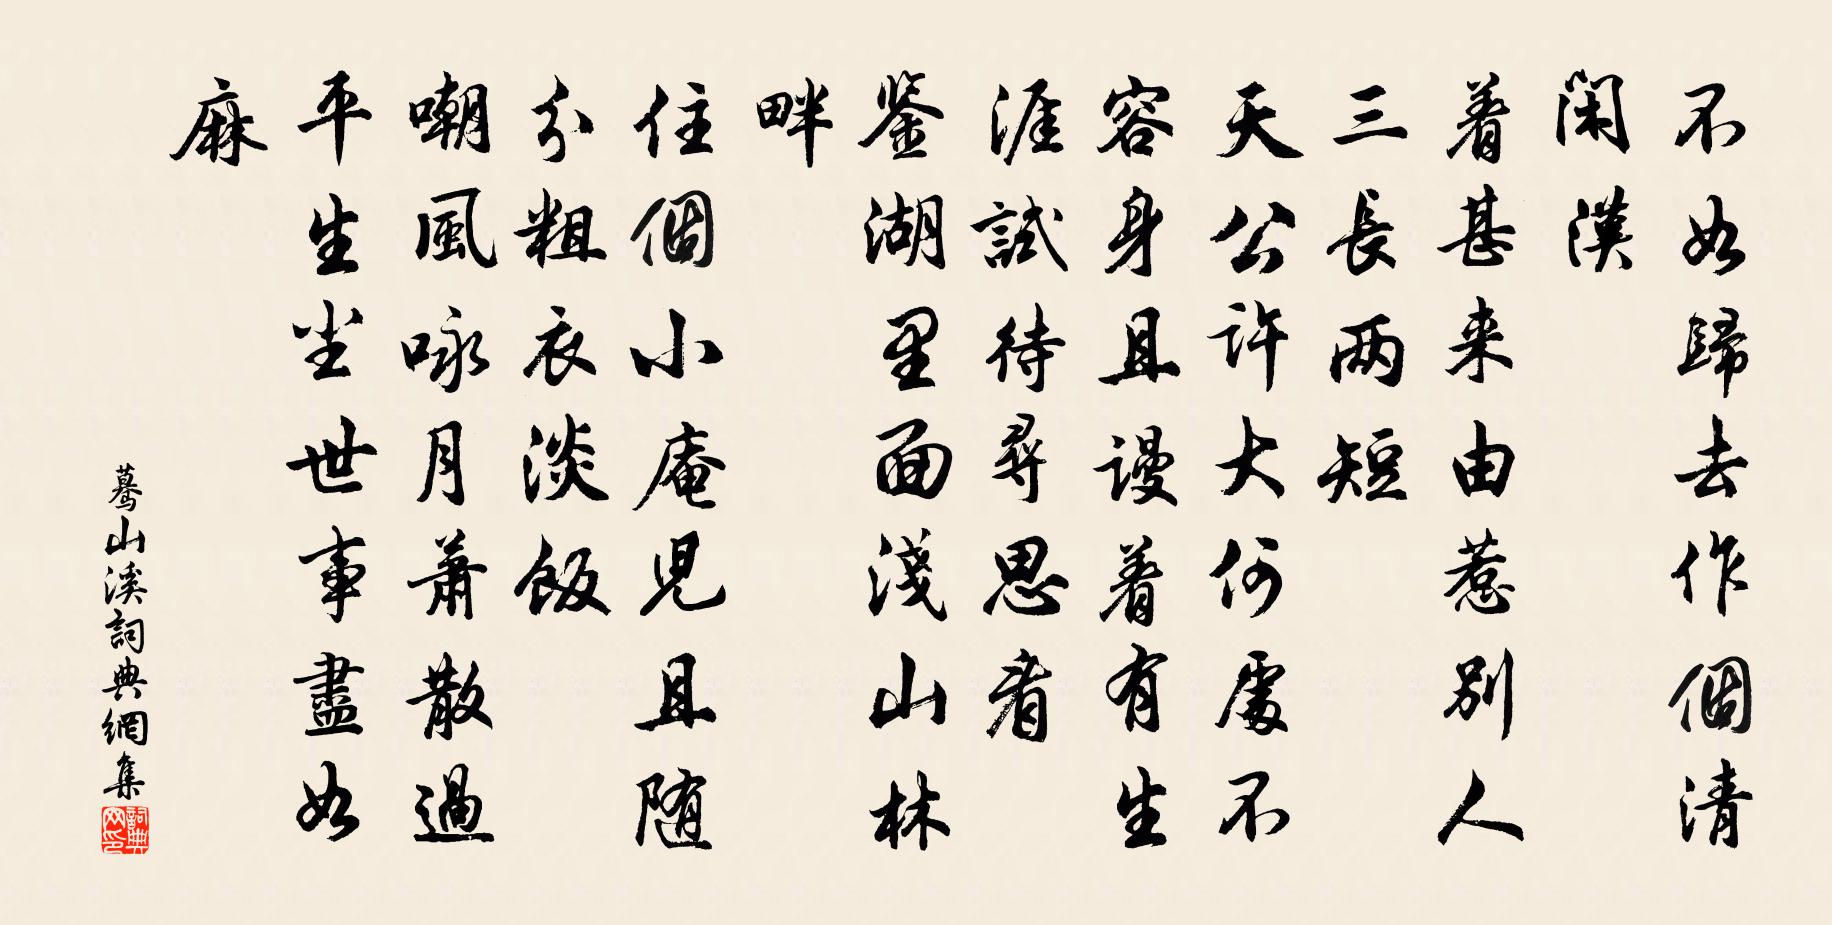 不如歸去作個清
閑漢
着甚来由惹别人
三長两短
天公許大何處不
容身且謾着有生
涯試待尋思看
鉴湖里面淺山林
畔
住個小庵兒且随
分粗衣淡飯
嘲風咏月蕭散過
平生坐世事盡如
麻
蓦山溪詞典網集
詞典
网印